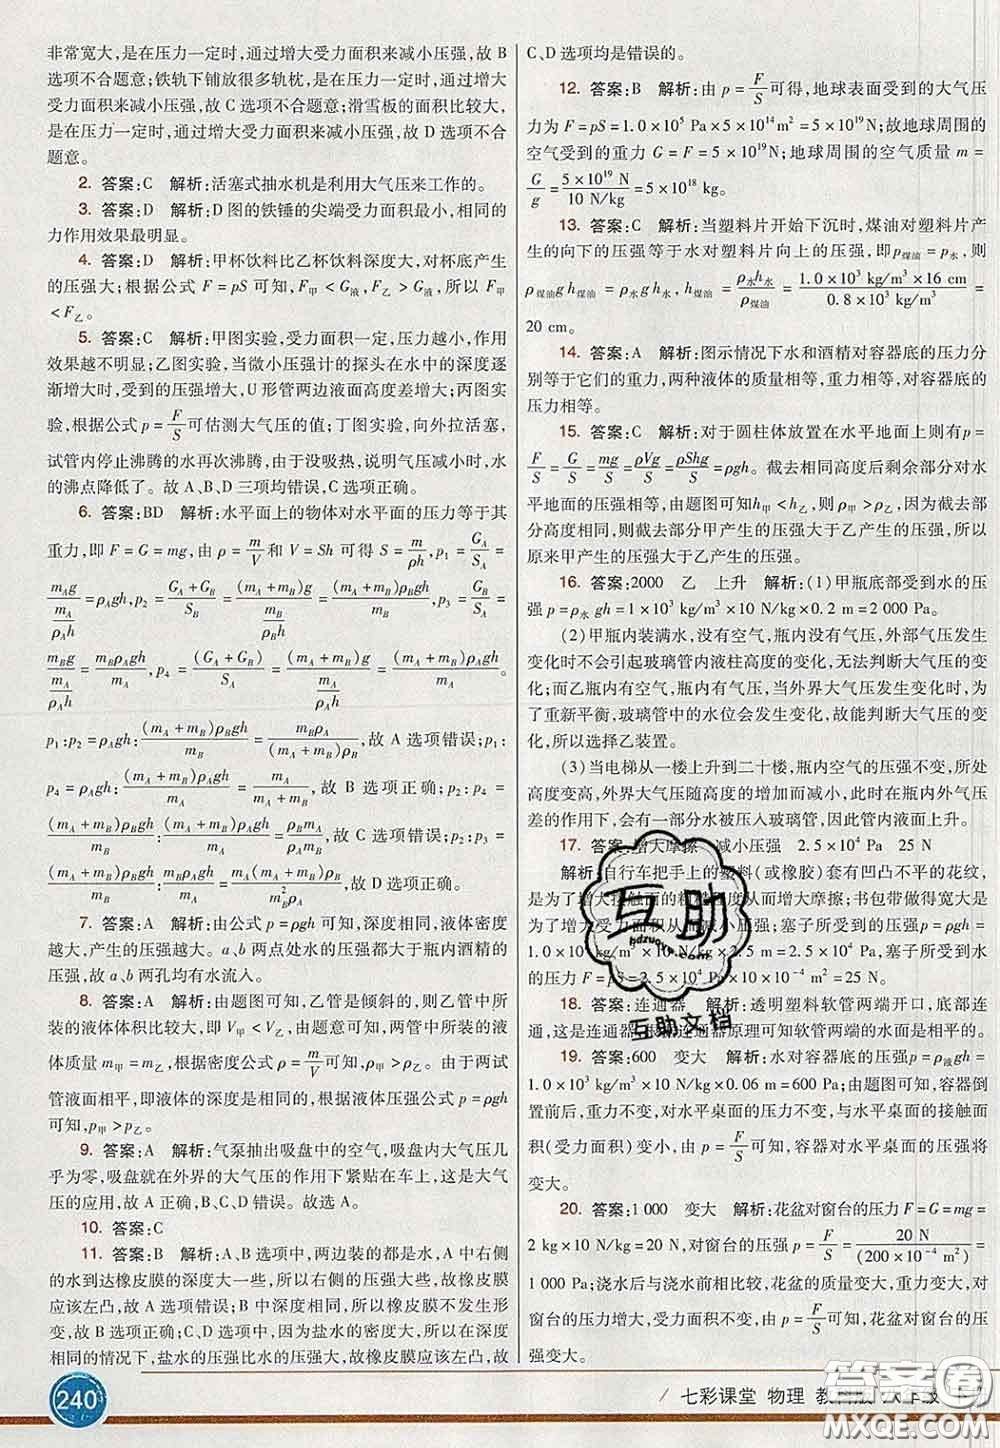 非常宽大,是在压力一定时,通过增大受力面积来减小压强,故 B
选项不合题意;铁轨下铺放很多轨枕,是在压力一定时,通过增大
受力面积来减小压强,故 C 选项不合题意;滑雪板的面积比较大,
是在压力一定时,通过增大受力面积来减小压强,故 D 选项不合
题意。
2. 答案:C 解析:活塞式抽水机是利用大气压来工作的。
3. 答案:D 解析:D 图的铁锤的尖端受力面积最小,相同的
力作用效果最明显。
4. 答案:D 解析:甲杯饮料比乙杯饮料深度大,对杯底产生
的压强大;根据公式 F=pS 可知,F甲<G液,F乙>G液,所以 F甲
<F乙。
5. 答案:C 解析:甲图实验,受力面积一定,压力越小,作用
效果越不明显;乙图实验,当微小压强计的探头在水中的深度逐
渐增大时,受到的压强增大,U 形管两边液面高度差增大;丙图实
验,根据公式 p=F/S可估测大气压的值;丁图实验,向外拉活塞,
试管内停止沸腾的水再次沸腾,由于没吸热,说明气压减小时,水
的沸点降低了。故 A、B、D 三项均错误,C 选项正确。
6. 答案:BD 解析:水平面上的物体对水平面的压力等于其
重力,即 F=G=mg,由 ρ=m/V 和 V=Sh 可得 S=m/ρh,p₁=G_A/S_A=
m_Ag/(m_A/ρ_Ah)=ρ_Agh,p₂=(G_A+G_B)/S_B=(m_A+m_B)g/(m_B/ρ_Bh)=(m_A+m_B)ρ_Bgh/m_B,p₃=G_B/S_A=
m_Bg/(m_A/ρ_Ah)=m_Bρ_Agh/m_A,p₄=(G_A+G_B)/S_A=(m_A+m_B)g/(m_A/ρ_Ah)=(m_A+m_B)ρ_Agh/m_A。
p₁:p₂=ρ_Agh:(m_A+m_B)ρ_Bgh/m_B=m_Bρ_A/(m_A+m_B)ρ_B,故 A 选项错误;p₁:
p₄=ρ_Agh:(m_A+m_B)ρ_Agh/m_A=m_A/(m_A+m_B),故 B 选项正确;p₂:p₄
=(m_A+m_B)ρ_Bgh/m_B:(m_A+m_B)ρ_Agh/m_A=ρ_Bm_A/ρ_Am_B,故 C 选项错误;p₂:p₃
=(m_A+m_B)ρ_Bgh/m_B:m_Bρ_Agh/m_A=m_A(m_A+m_B)ρ_B/m_B²ρ_A,故 D 选项正确。
7. 答案:A 解析:由公式 p=ρgh 可知,深度相同,液体密度
越大,产生的压强越大。a、b 两点处水的压强都大于瓶内酒精的
压强,故 a、b 两孔均有水流入。
8. 答案:A 解析:由题图可知,乙管是倾斜的,则乙管中所
装的液体体积比较大,即 V甲<V乙,由题意可知,两管中所装的液
体质量 m甲=m乙,根据密度公式 ρ=m/V可知,ρ甲>ρ乙。由于两试
管液面相平,即液体的深度是相同的,根据液体压强公式 p=ρgh
可知 p甲>p乙。
9. 答案:A 解析:气泵抽出吸盘中的空气,吸盘内大气压几
乎为零,吸盘就在外界的大气压的作用下紧贴在车上,这是大气
压的应用,故 A 正确,B、C、D 错误。故选 A。
10. 答案:C
11. 答案:B 解析:A、B 选项中,两边装的都是水,A 中右侧
的水到达橡皮膜的深度大一些,所以右侧的压强大,故橡皮膜
应该左凸,故 A 选项错误;B 中深度相同,所以橡皮膜不发生形
变,故 B 选项正确;C、D 选项中,因为盐水的密度大,所以在深度
相同的情况下,盐水的压强比水的压强大,故橡皮膜应该左凸,故
C、D 选项均是错误的。
12. 答案:B 解析:由 p=F/S可得,地球表面受到的大气压
力为 F=pS=1.0×10⁵ Pa×5×10¹⁴m²=5×10¹⁹N;故地球周围的
空气受到的重力 G=F=5×10¹⁹N;地球周围的空气质量 m=
G/g=5×10¹⁹ N/10 N/kg=5×10¹⁸ kg。
13. 答案:C 解析:当塑料片开始下沉时,煤油对塑料片产
生的向下的压强等于水对塑料片向上的压强,即p煤油=p水,则
ρ煤油gh煤油=ρ水gh水,h煤油=ρ水h水/ρ煤油=1.0×10³ kg/m³×16 cm/0.8×10³ kg/m³=
20 cm。
14. 答案:A 解析:图示情况下水和酒精对容器底的压力分
别等于它们的重力,两种液体的质量相等,重力相等,对容器底的
压力相等。
15. 答案:C 解析:对于圆柱体放置在水平地面上则有p=
F/S=G/S=mg/S=ρVg/S=ρShg/S=ρgh。截去相同高度后剩余部分对水
平地面的压强相等,由题图可知h甲<h乙,则ρ甲>ρ乙,因为截去部
分高度相同,则截去部分甲产生的压强大于乙产生的压强,所以
原来甲产生的压强大于乙产生的压强。
16. 答案:2000 乙 上升 解析:(1)甲瓶底部受到水的压
强 p=ρ水 gh=1×10³ kg/m³×10 N/kg×0.2 m=2 000 Pa。
(2)甲瓶内装满水,没有空气,瓶内没有气压,外部气压发生
变化时不会引起玻璃管内液柱高度的变化,无法判断大气压的变
化;而乙瓶内有空气,瓶内有气压,当外界大气压发生变化时,为
了重新平衡,玻璃管中的水位会发生变化,故能判断大气压的变
化,所以选择乙装置。
(3)当电梯从一楼上升到二十楼,瓶内空气的压强不变,所处
高度变高,外界大气压随高度的增加而减小,此时在瓶内外气压
差的作用下,会有一部分水被压入玻璃管,因此管内液面上升。
17. 答案:增大摩擦 减小压强 2.5×10⁴ Pa 25 N
解析:自行车把手上的塑料(或橡胶)套有凹凸不平的花纹,
是为了增大接触面的粗糙程度从而增大摩擦;书包带做得很宽大
是为了增大受力面积从而减小压强;塞子所受到的压强 p=ρgh=
1.0×10³ kg/m³×10 N/kg×2.5 m=2.5×10⁴ Pa,塞子所受到水
的压力 F=pS=2.5×10⁴ Pa×10×10⁻⁴ m²=25 N。
18. 答案:连通器 解析:透明塑料软管两端开口,底部连
通,这是连通器,根据连通器原理可知软管两端的水面是相平的。
19. 答案:600 变大 解析:水对容器底的压强 p=ρ液gh=
1.0×10³ kg/m³×10 N/kg×0.06 m=600 Pa;由题图可知,容器倒
倒置前后,重力不变,对水平桌面的压力不变,与水平桌面的接触
面积(受力面积)变小,由 p=F/S可知,容器对水平桌面的压强将
变大。
20. 答案:1 000 变大 解析:花盆对窗台的压力 F=G=mg=
2 kg×10 N/kg=20 N,对窗台的压强 p=F/S=20 N/(200×10⁻⁴ m²)=
1 000 Pa;浇水后与浇水前相比较,花盆的质量变大,重力变大,对
窗台的压力增大,受力面积不变,由 p=F/S可知,花盆对窗台的压
强变大。
互助
hdzuoye.com
互助文档
答案圈
240
七彩课堂 物理 教科版 八年级